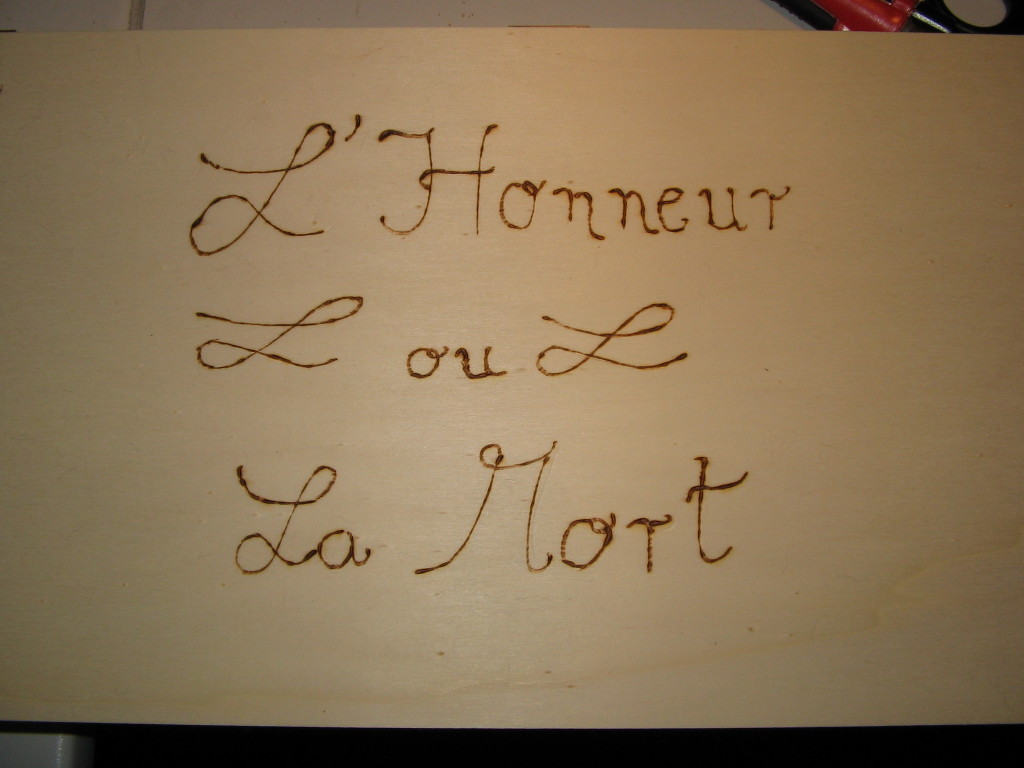 L'Honneur
ou
La Mort